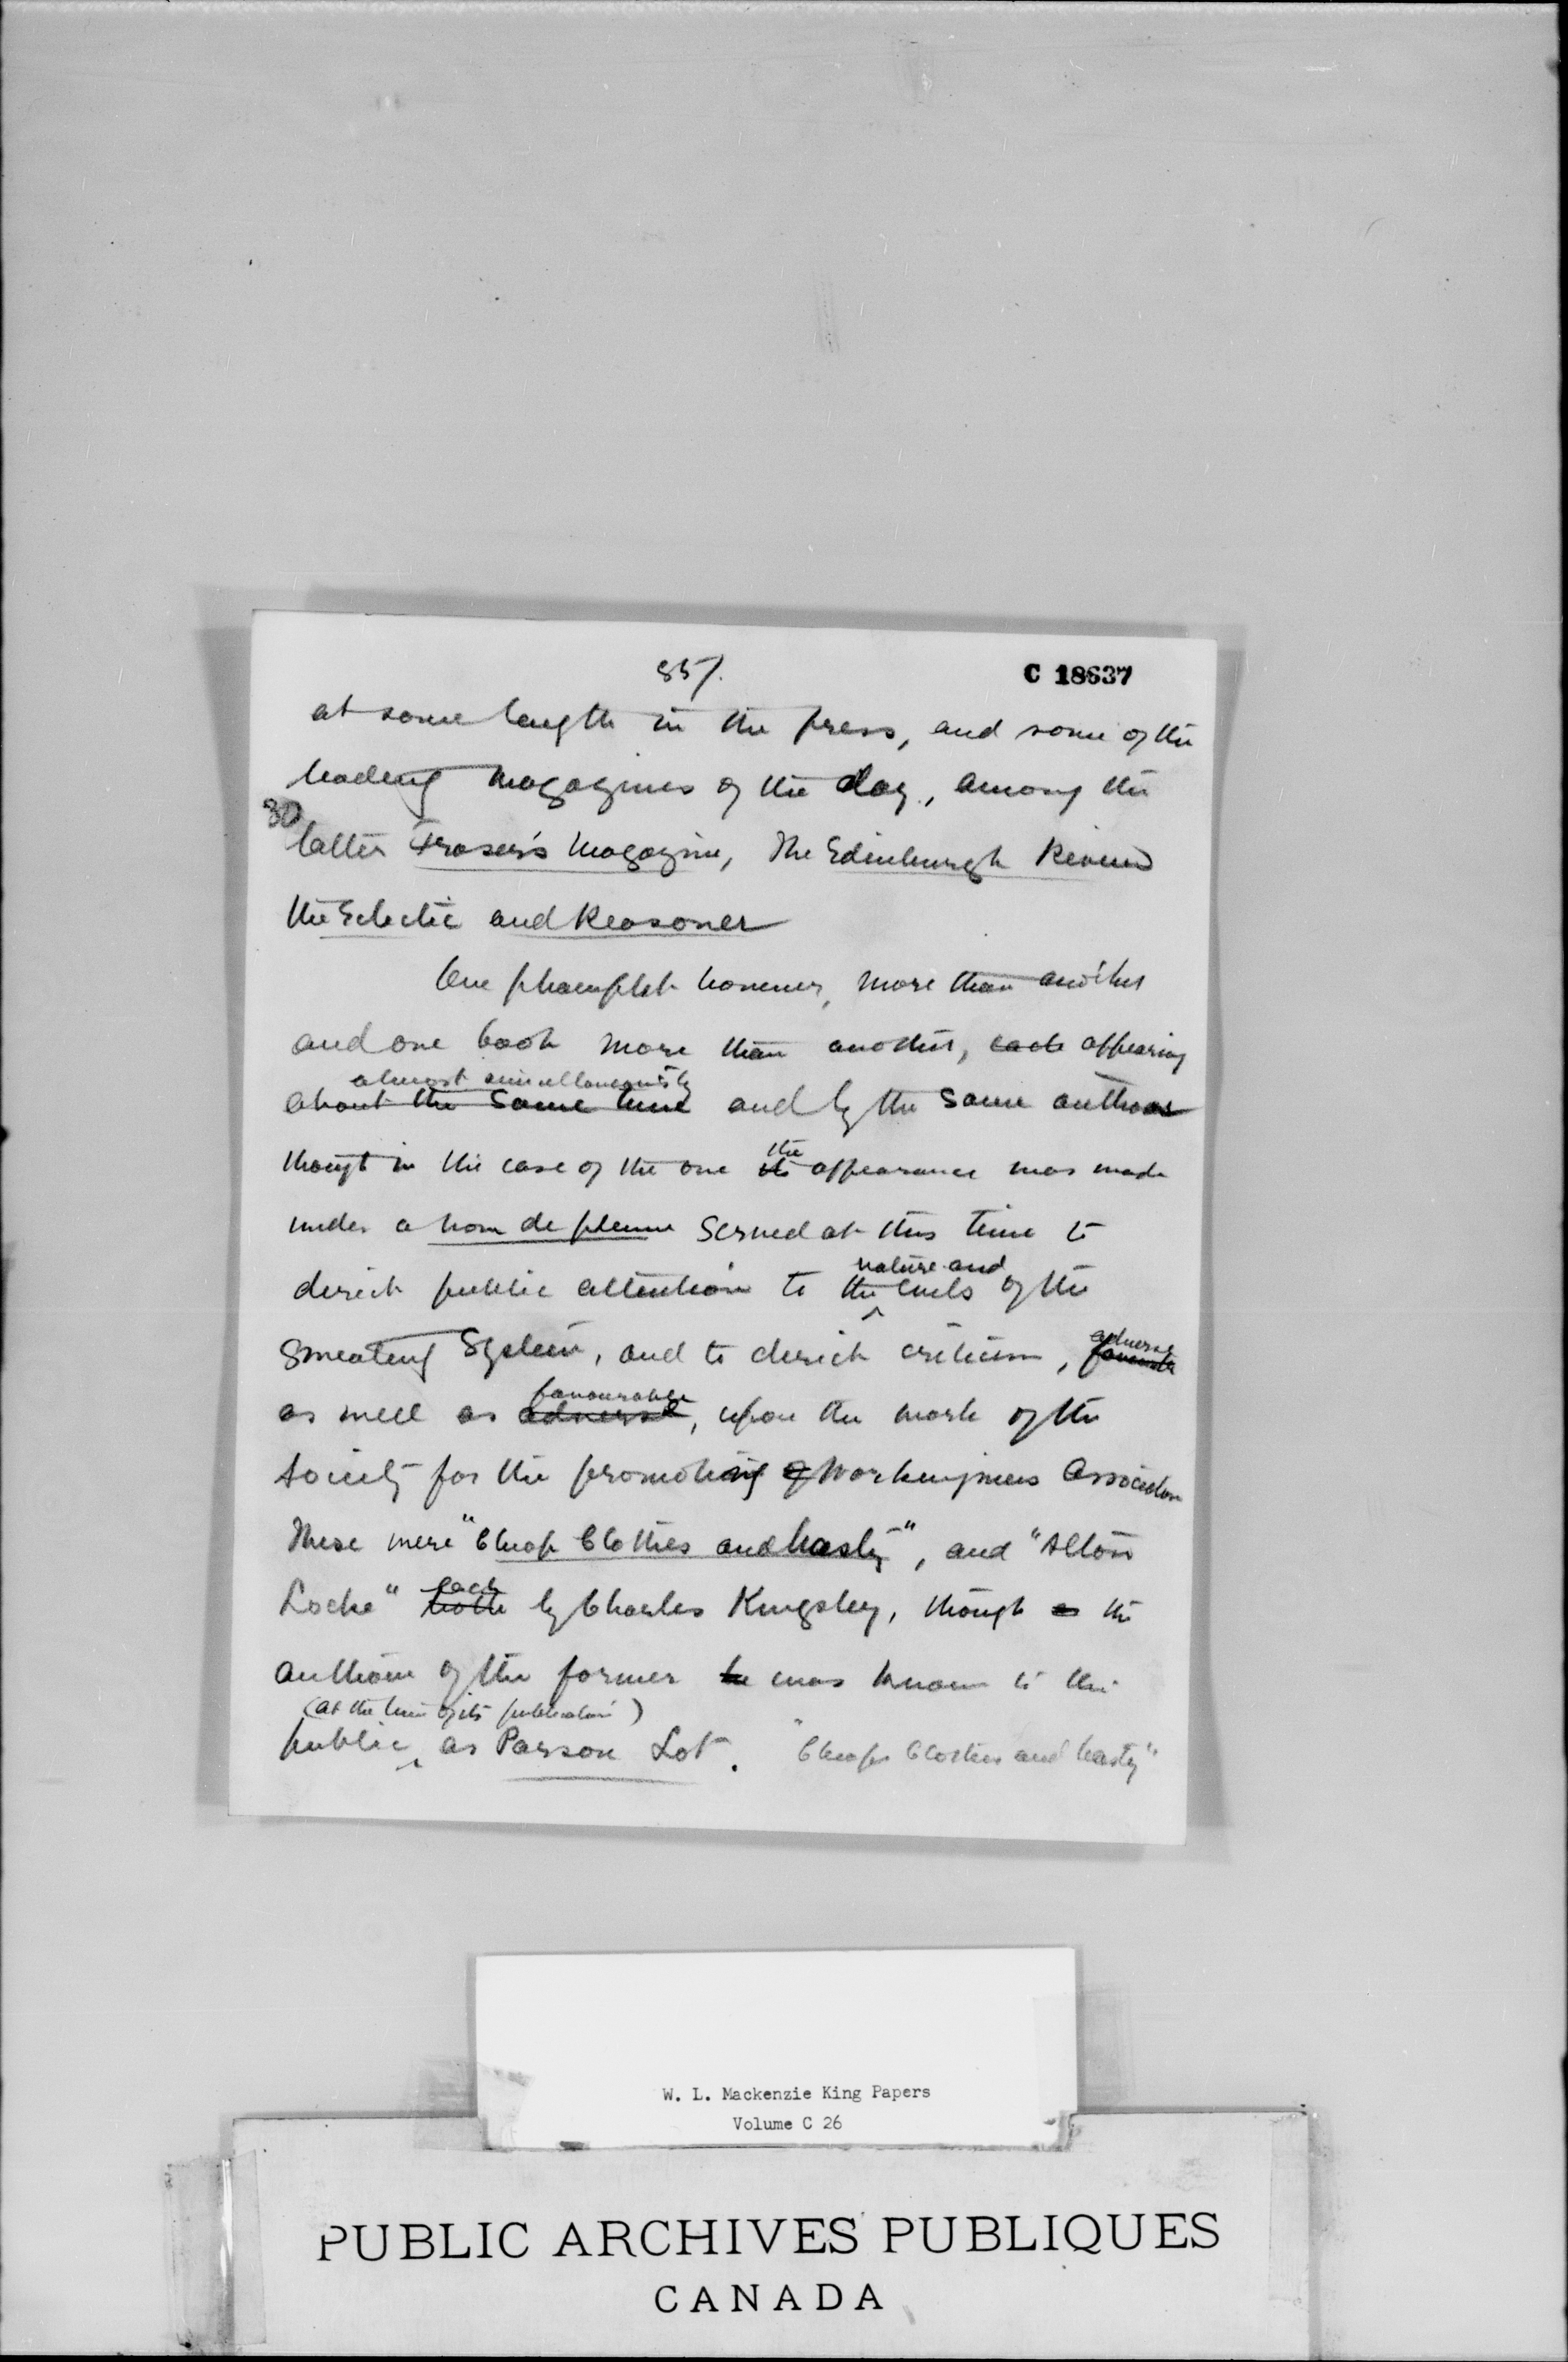 857.
C 18637
at some length in the press, and some of the
leading magazines of the day, among the
30
latter Fraser's Magazine, The Edinburgh Review
the Eclectic and Reasoner
One phamplet however, more than another
and one book more than another, each appearing
almost simultaneously
about the same time and by the same author
though in the case of the one its the appearance was made
under a nom de plume served at this time to
nature and
direct public attention to the evils of the
sweating system, and to direct criticism, adverse
favourable
as well as adverse, upon the work of the
Society for the promoting of Workingmens Association
These were "Cheap Clothes and Nasty", and "Alton
each
Locke" both by Charles Kingsley, though as the
author of the former he was known to the
(at the time of its publication)
public as Parson Lot. "Cheap Clothes and Nasty"
W. L. Mackenzie King Papers
Volume C 26
PUBLIC ARCHIVES PUBLIQUES
CANADA